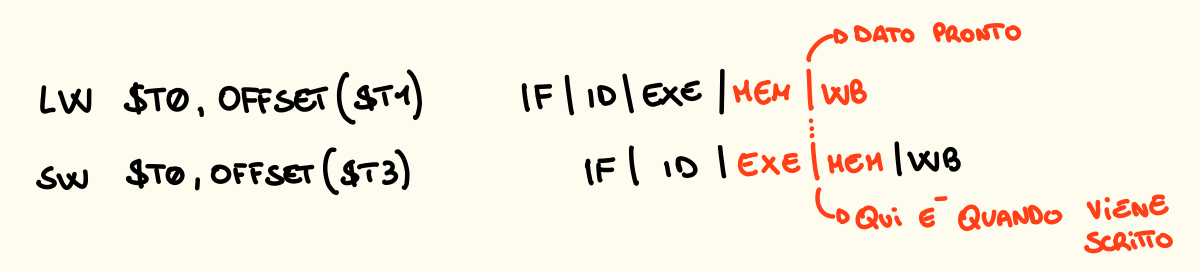 DATO PRONTO
LW $T0, OFFSET($T1) IF | ID | EXE | MEM | WB
SW $T0, OFFSET($T3) IF | ID | EXE | MEM | WB
QUI E' QUANDO VIENE
SCRITTO